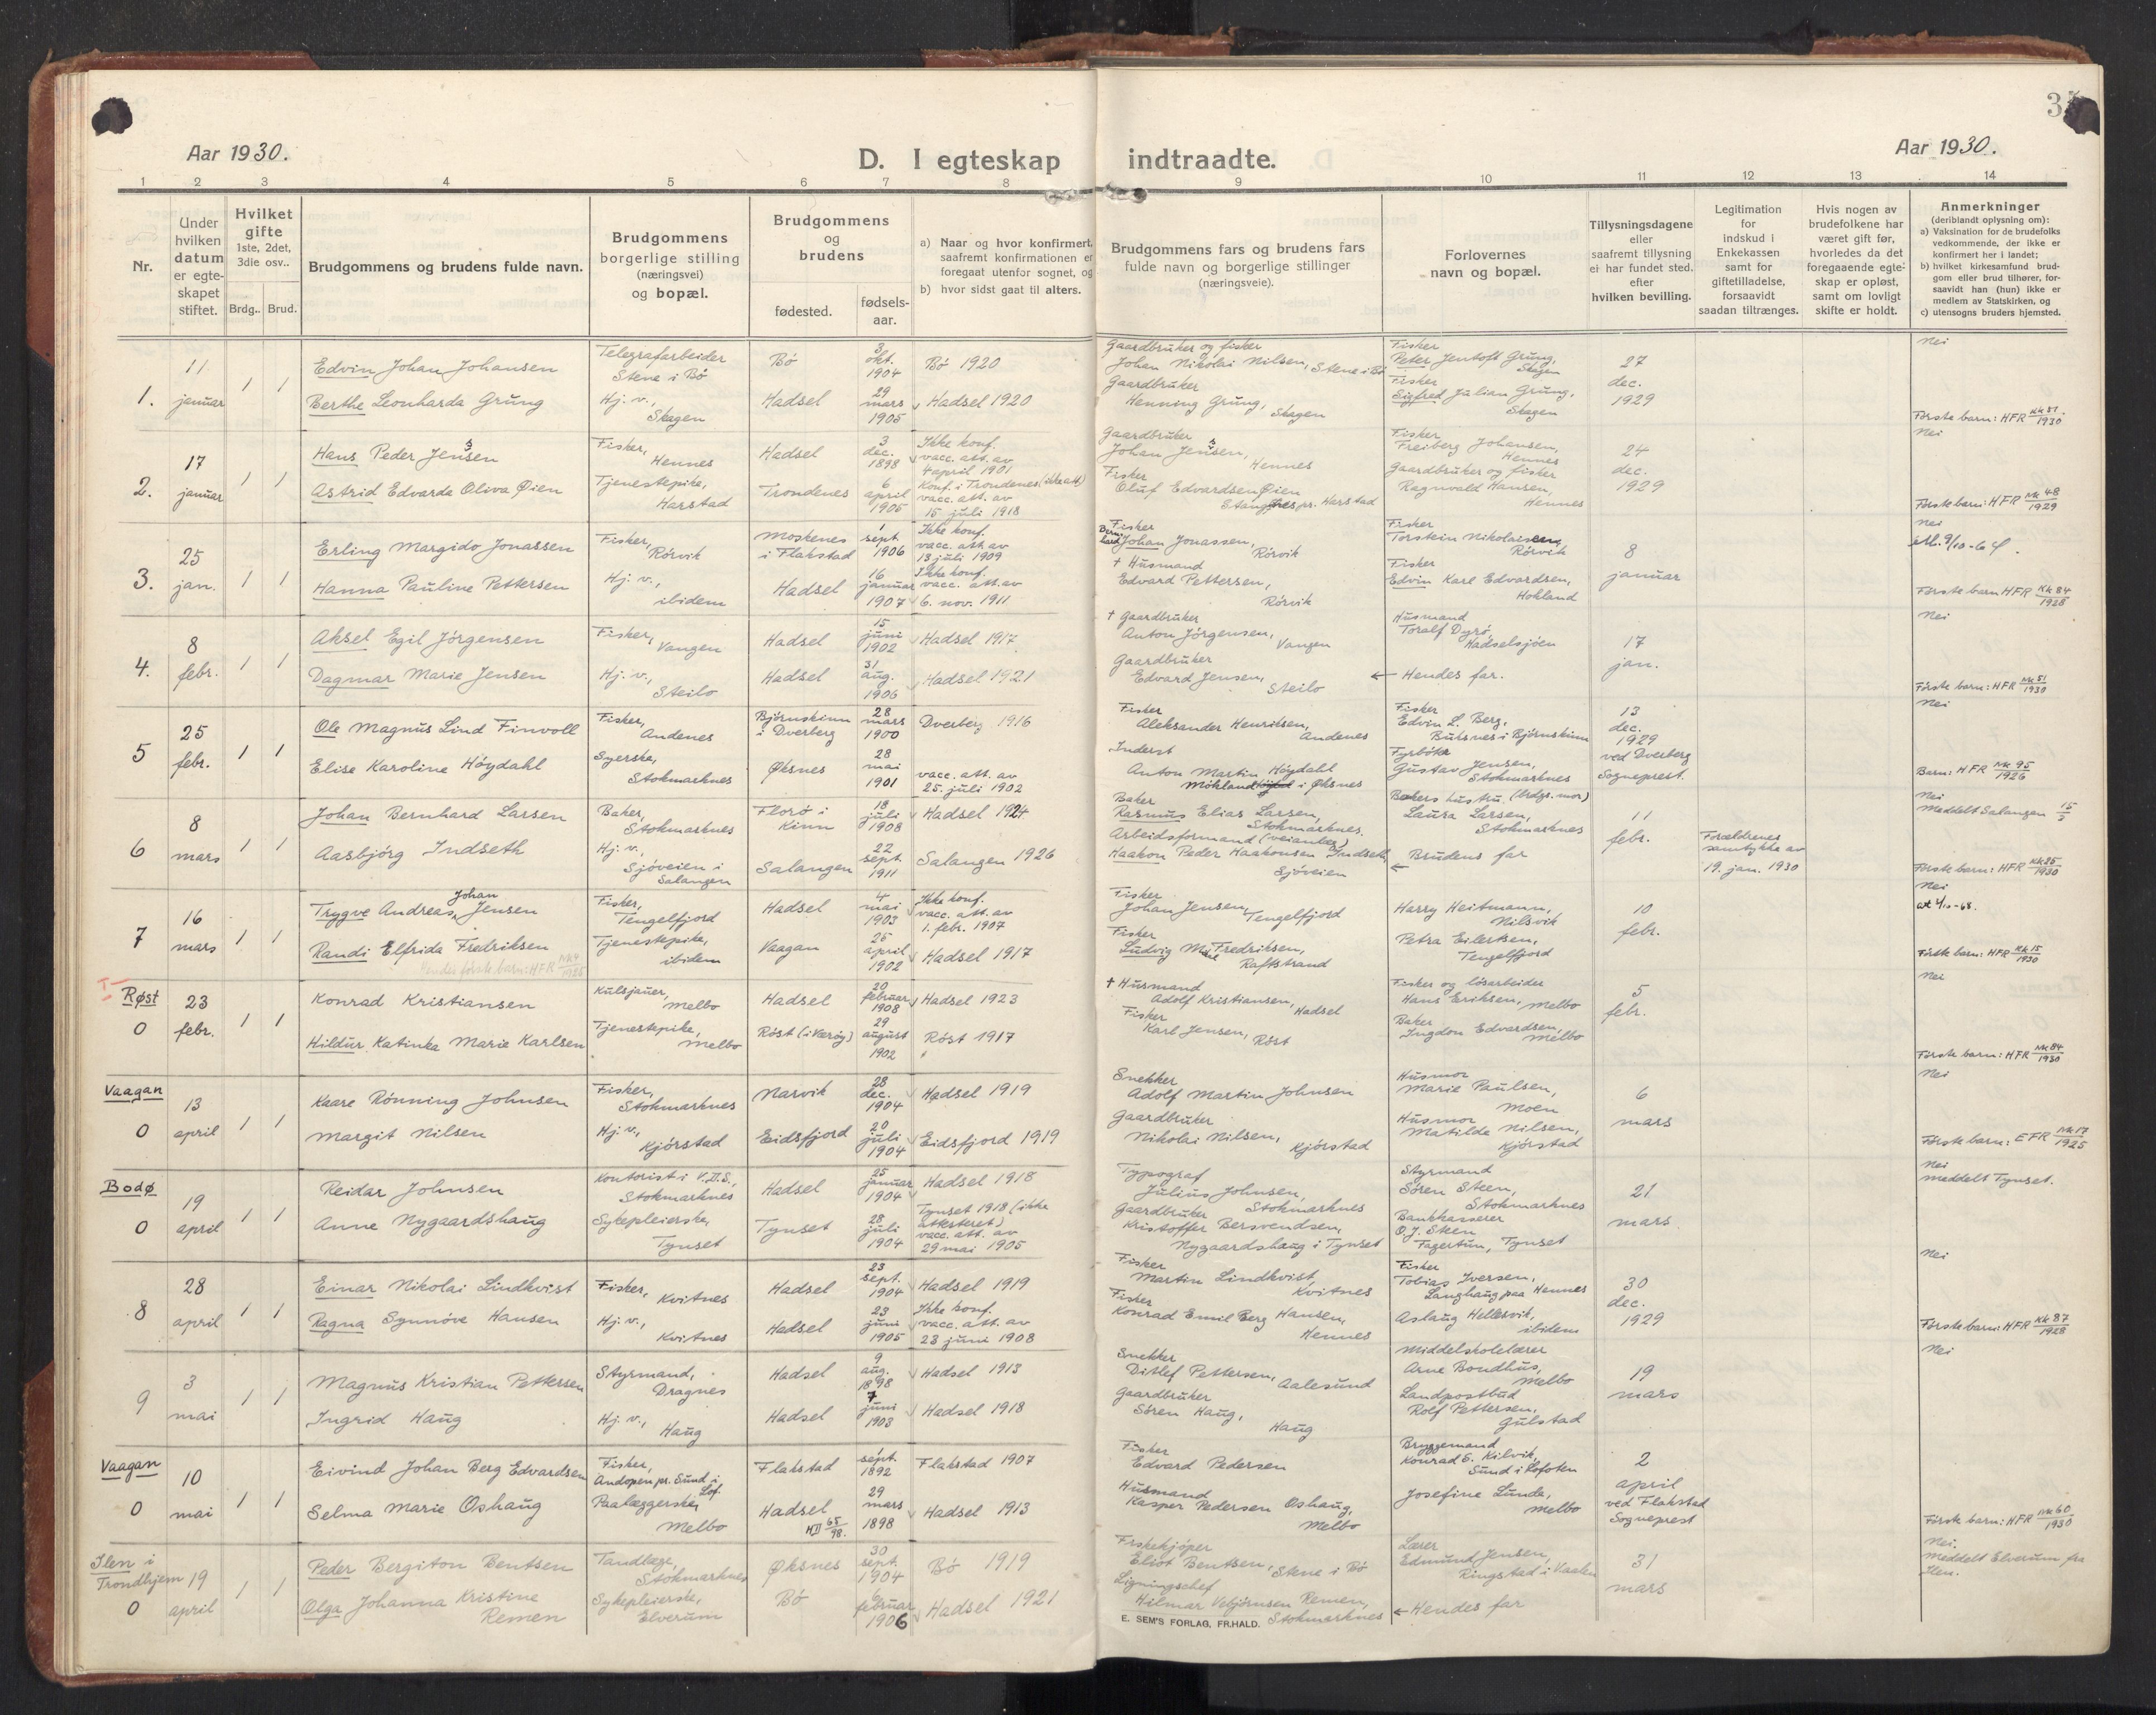 Aar 1930.
D. I egteskap indtraadte.
Aar 1930.
1 2 3 4 5 6 7 8 9 10 11 12 13 14
Nr.
Under
hvilken
datum
er egte-
skapet
stiftet.
Hvilket
gifte
1ste, 2det,
3die osv..
Brdg.. Brud.
Brudgommens og brudens fulde navn.
Brudgommens
borgerlige stilling
(næringsvei)
og bopæl.
Brudgommens
og
brudens
fødested.
fødsels-
aar.
a) Naar og hvor konfirmert,
saafremt konfirmationen er
foregaat utenfor sognet, og
b) hvor sidst gaat til alters.
Brudgommens fars og brudens fars
fulde navn og borgerlige stillinger
(næringsveie).
Forlovernes
navn og bopæl.
Tillysningsdagene
eller
saafremt tillysning
ei har fundet sted.
efter
hvilken bevilling.
Legitimation
for
indskud i
Enkekassen
samt for
giftetilladelse,
forsaavidt
saadan tiltrænges.
Hvis nogen av
brudefolkene har
været gift før,
hvorledes da det
foregaaende egte-
skap er opløst,
samt om lovligt
skifte er holdt.
Anmerkninger
(deriblandt oplysning om):
a) Vaksination for de brudefolks
vedkommende, der ikke er
konfirmert her i landet;
b) hvilket kirkesamfund brud-
gom eller brud tilhører, for-
saavidt han (hun) ikke er
medlem av Statskirken, og
c) utensogns bruders hjemsted.
1.
11
januar
1 1
Edvin Johan Johansen
Berthe Leonharda Grung
Telegrafarbeider
Stene i Bø
Hj. v.,
Skagen
Bø
Hadsel
3
okt.
1904
29
mars
1905
Bø 1920
Hadsel 1920
Gaardbruker og fisker
Johan Nikolai Nilsen, Stene i Bø
Gaardbruker
Henning Grung, Skagen
Fisker
Peter Jentoft Grung,
Skagen
Fisker
Sigfred Julian Grung,
Skagen
27
dec.
1929
Nei
Første barn: HFR Kk 81/1930
2.
17
januar
1 1
Hans Peder Jensen
Astrid Edvarda Oliva Øien
Fisker,
Hennes
Tjenestepike,
Harstad
Hadsel
Trondenes
3
dec.
1898
6
april
1905
Ikke konf.
vacc. att. av
4 april 1901
Konf. i Trondenes (ikke att)
vacc. att. av
15 juli 1918
Gaardbruker
Johan Jensen,
Hennes
Fisker
Oluf Edvardsen Øien
Stangnes pr. Harstad
Fisker
Freiberg Johansen,
Hennes
Gaardbruker og fisker
Ragnvald Hansen,
Hennes
24
dec.
1929
Nei
Første barn: HFR Nk 48/1929
3.
25
jan.
1 1
Erling Margido Jonassen
Hanna Pauline Pettersen
Fisker,
Rørvik
Hj. v.,
ibidem
Moskenes
i Flakstad
Hadsel
1
sept
1906
16
januar
1907
Ikke konf.
vacc. att. av
13 juli 1909
Ikke konf.
vacc. att. av
6. nov. 1911
Fisker
Bernhard Johan Jonassen,
Rørvik
† Husmand
Edvard Pettersen,
Rørvik
Fisker
Torstein Nikolaisen,
Rørvik
Fisker
Edvin Karl Edvardsen,
Hokland
8
januar
Nei
Første barn HFR Kk 84/1928
4.
8
febr.
1 1
Aksel Egil Jørgensen
Dagmar Marie Jensen
Fisker,
Vangen
Hj. v.,
Steilo
Hadsel
Hadsel
15
juni
1902
31
aug.
1906
Hadsel 1917
Hadsel 1921
† Gaardbruker
Anton Jørgensen,
Vangen
Gaardbruker
Edvard Jensen,
Steilo
Husmand
Toralf Dyrø,
Hadselsjøen
← Hendes far.
17
jan.
Nei
Første barn: HFR Nk 51/1930
5
25
febr.
1 1
Ole Magnus Lind Finvoll
Elise Karoline Høydahl
Fisker,
Andenes
Syerske,
Stokmarknes
Bjørnskinn
i Dverberg
Øksnes
28
mars
1900
28
mai
1901
Dverberg 1916
vacc. att. av
25. juli 1902
Fisker
Aleksander Henriksen,
Andenes
Inderst
Anton Martin Høydahl
Møkland i Øksnes
Fisker
Edvin L. Berg,
Buksnes i Bjørnskinn
Fyrbøter
Gustav Jensen,
Stokmarknes
13
dec.
1929
ved Dverberg
Sogneprest.
Nei
Barn: HFR Nk 95/1926
6
8
mars
1 1
Johan Bernhard Larsen
Aasbjørg Indseth
Baker,
Stokmarknes
Hj. v.,
Sjøveien i
Salangen
Florø i
Kinn
Salangen
18
juli
1908
22
sept.
1911
Hadsel 1924
Salangen 1926
Baker
Rasmus Elias Larsen,
Stokmarknes.
Arbeidsformand (veianlæg)
Haakon Peder Haakonsen Indseth,
Sjøveien
Bakers hustru (brdgs. mor)
Laura Larsen,
Stokmarknes
← Brudens far
11
febr.
Forældrenes
samtykke av
19. jan. 1930
Nei
Meddelt Salangen 15/3
Første barn: HFR Kk 25/1930
7
16
mars
1 1
Johan
Trygve Andreas Jensen
Randi Elfrida Fredriksen
Hendes første barn: HFR Nk 4/1925
Fisker,
Tengelfjord
Tjenestepike,
ibidem
Hadsel
Vaagan
4
mai
1903
25
april
1902
Ikke konf.
vacc. att. av
1. febr. 1907
Hadsel 1917
Fisker
Johan Jensen,
Tengelfjord
Fisker
Ludvig Fredriksen,
Raftstrand
Harry Heitmann,
Nilsvik
Petra Eilertsen,
Tengelfjord
10
febr.
Nei
Første barn: HFR Kk 15/1930
Røst
0
23
febr.
1 1
Konrad Kristiansen
Hildur Katinka Marie Karlsen
Kulsjauer,
Melbo
Tjenestepike,
Melbo
Hadsel
Røst (i Værøy)
20
februar
1908
29
august
1902
Hadsel 1923
Røst 1917
† Husmand
Adolf Kristiansen,
Hadsel
Fisker
Karl Jensen,
Røst
Fisker og løsarbeider
Hans Eriksen, Melbo
Baker
Ingdon Edvardsen,
Melbo
5
febr.
Nei
Første barn: HFR Nk 84/1930
Vaagan
0
13
april
1 1
Kaare Rønning Johnsen
Margit Nilsen
Fisker,
Stokmarknes
Hj. v.,
Kjørstad
Narvik
Eidsfjord
28
dec.
1904
20
juli
1904
Hadsel 1919
Eidsfjord 1919
Snekker
Adolf Martin Johnsen
Gaardbruker
Nikolai Nilsen,
Kjørstad
Husmor
Marie Paulsen,
Moen
Husmor
Matilde Nilsen,
Kjørstad
6
mars
Nei
Første barn: EFR Nk 17/1925
Bodø
0
19
april
1 1
Reidar Johnsen
Anne Nygaardshaug
Kontorist i V.D.S.,
Stokmarknes
Sykepleierske,
Tynset
Hadsel
Tynset
25
januar
1904
28
juli
1904
Hadsel 1918
Tynset 1918 (ikke
attesteret)
vacc. att. av
29 mai 1905
Typograf
Julius Johnsen,
Stokmarknes
Gaardbruker
Kristoffer Bersvendsen,
Nygaardshaug i Tynset
Styrmand
Søren Steen,
Stokmarknes
Bankkasserer
O. J. Steen
Fagertun, Tynset
21
mars
Nei
meddelt Tynset.
8
28
april
1 1
Einar Nikolai Lindkvist
Ragna Synnøve Hansen
Fisker,
Kvitnes
Hj. v.,
Kvitnes
Hadsel
Hadsel
23
sept.
1904
23
juni
1905
Hadsel 1919
Ikke konf.
vacc. att. av
23 juni 1908
Fisker
Martin Lindkvist,
Kvitnes
Fisker
Konrad Emil Berg Hansen,
Hennes
Fisker
Tobias Iversen,
Langhaug paa Hennes
Aslaug Hellesvik,
ibidem
30
dec.
1929
Nei
Første barn: HFR Kk 87/1928
9
3
mai
1 1
Magnus Kristian Pettersen
Ingrid Haug
Styrmand,
Dragnes
Hj. v.,
Haug
Hadsel
Hadsel
9
aug.
1898
7
juni
1903
Hadsel 1913
Hadsel 1918
Snekker
Ditlef Pettersen,
Aalesund
Gaardbruker
Søren Haug,
Haug
Middelskolelærer
Arne Bondhus,
Melbo
Landpostbud
Rolf Pettersen,
Gulstad
19
mars
Nei
Vaagan
0
10
mai
1 1
Eivind Johan Berg Edvardsen
Selma Marie Oshaug
Fisker,
Andopen pr. Sund i
Lof.
Paalæggerske,
Melbo
Flakstad
Hadsel
HII 65/98.
1
sept.
1892
29
mars
1898
Flakstad 1907
Hadsel 1913
Fisker
Edvard Pedersen
Husmand
Kasper Pedersen Oshaug,
Melbo
Bryggemand
Konrad E. Kilvik,
Sund i Lofoten
Josefine Lunde,
Melbo
2
april
ved Flakstad
Sogneprest
Første barn: HFR Nk 60/1930
Ilen i
Trondhjem
0
19
april
1 1
Peder Bergiton Bentsen
Olga Johanna Kristine
Remen
Tandlæge,
Stokmarknes
Sykepleierske,
Elverum
Øksnes
Bø
30
sept.
1904
6
februar
1906
Bø 1919
Hadsel 1921
Fiskekjøper
Eliot Bentsen, Stene i Bø
Ligningschef
Hilmar Vebjørnsen Remen,
Stokmarknes
Lærer
Edmund Jensen,
Ringstad i Vaalen
← Hendes far
31
mars
Nei.
meddelt Elverum fra
Ilen.
E. SEM'S FORLAG, FR.HALD.